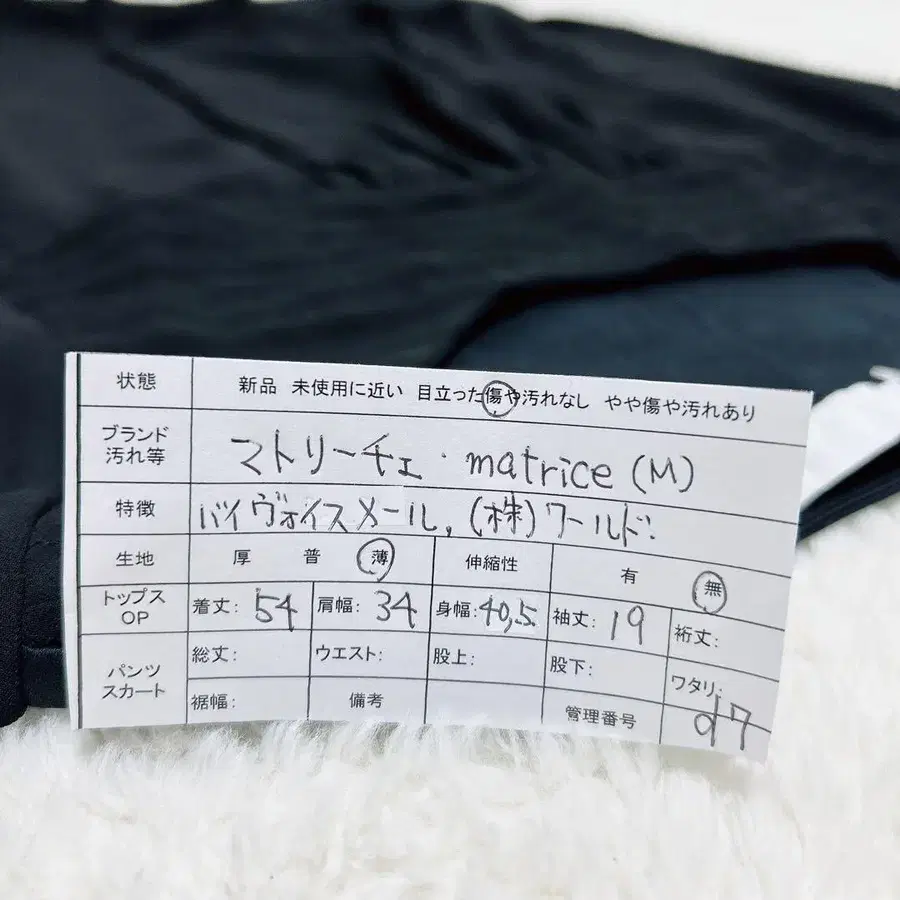 状態 新品 未使用に近い 目立った傷や汚れなし やや傷や汚れあり
ブランド
汚れ等 マトリーチェ・matrice (M)
特徴 バイヴォイスメール,(株)ワールド:
生地 厚 普 薄 伸縮性 有 無
トップス
OP 着丈: 54 肩幅: 34 身幅: 40,5 袖丈: 19 裄丈:
パンツ
スカート 総丈: ウエスト: 股上: 股下: ワタリ:
裾幅: 備考 管理番号 d7